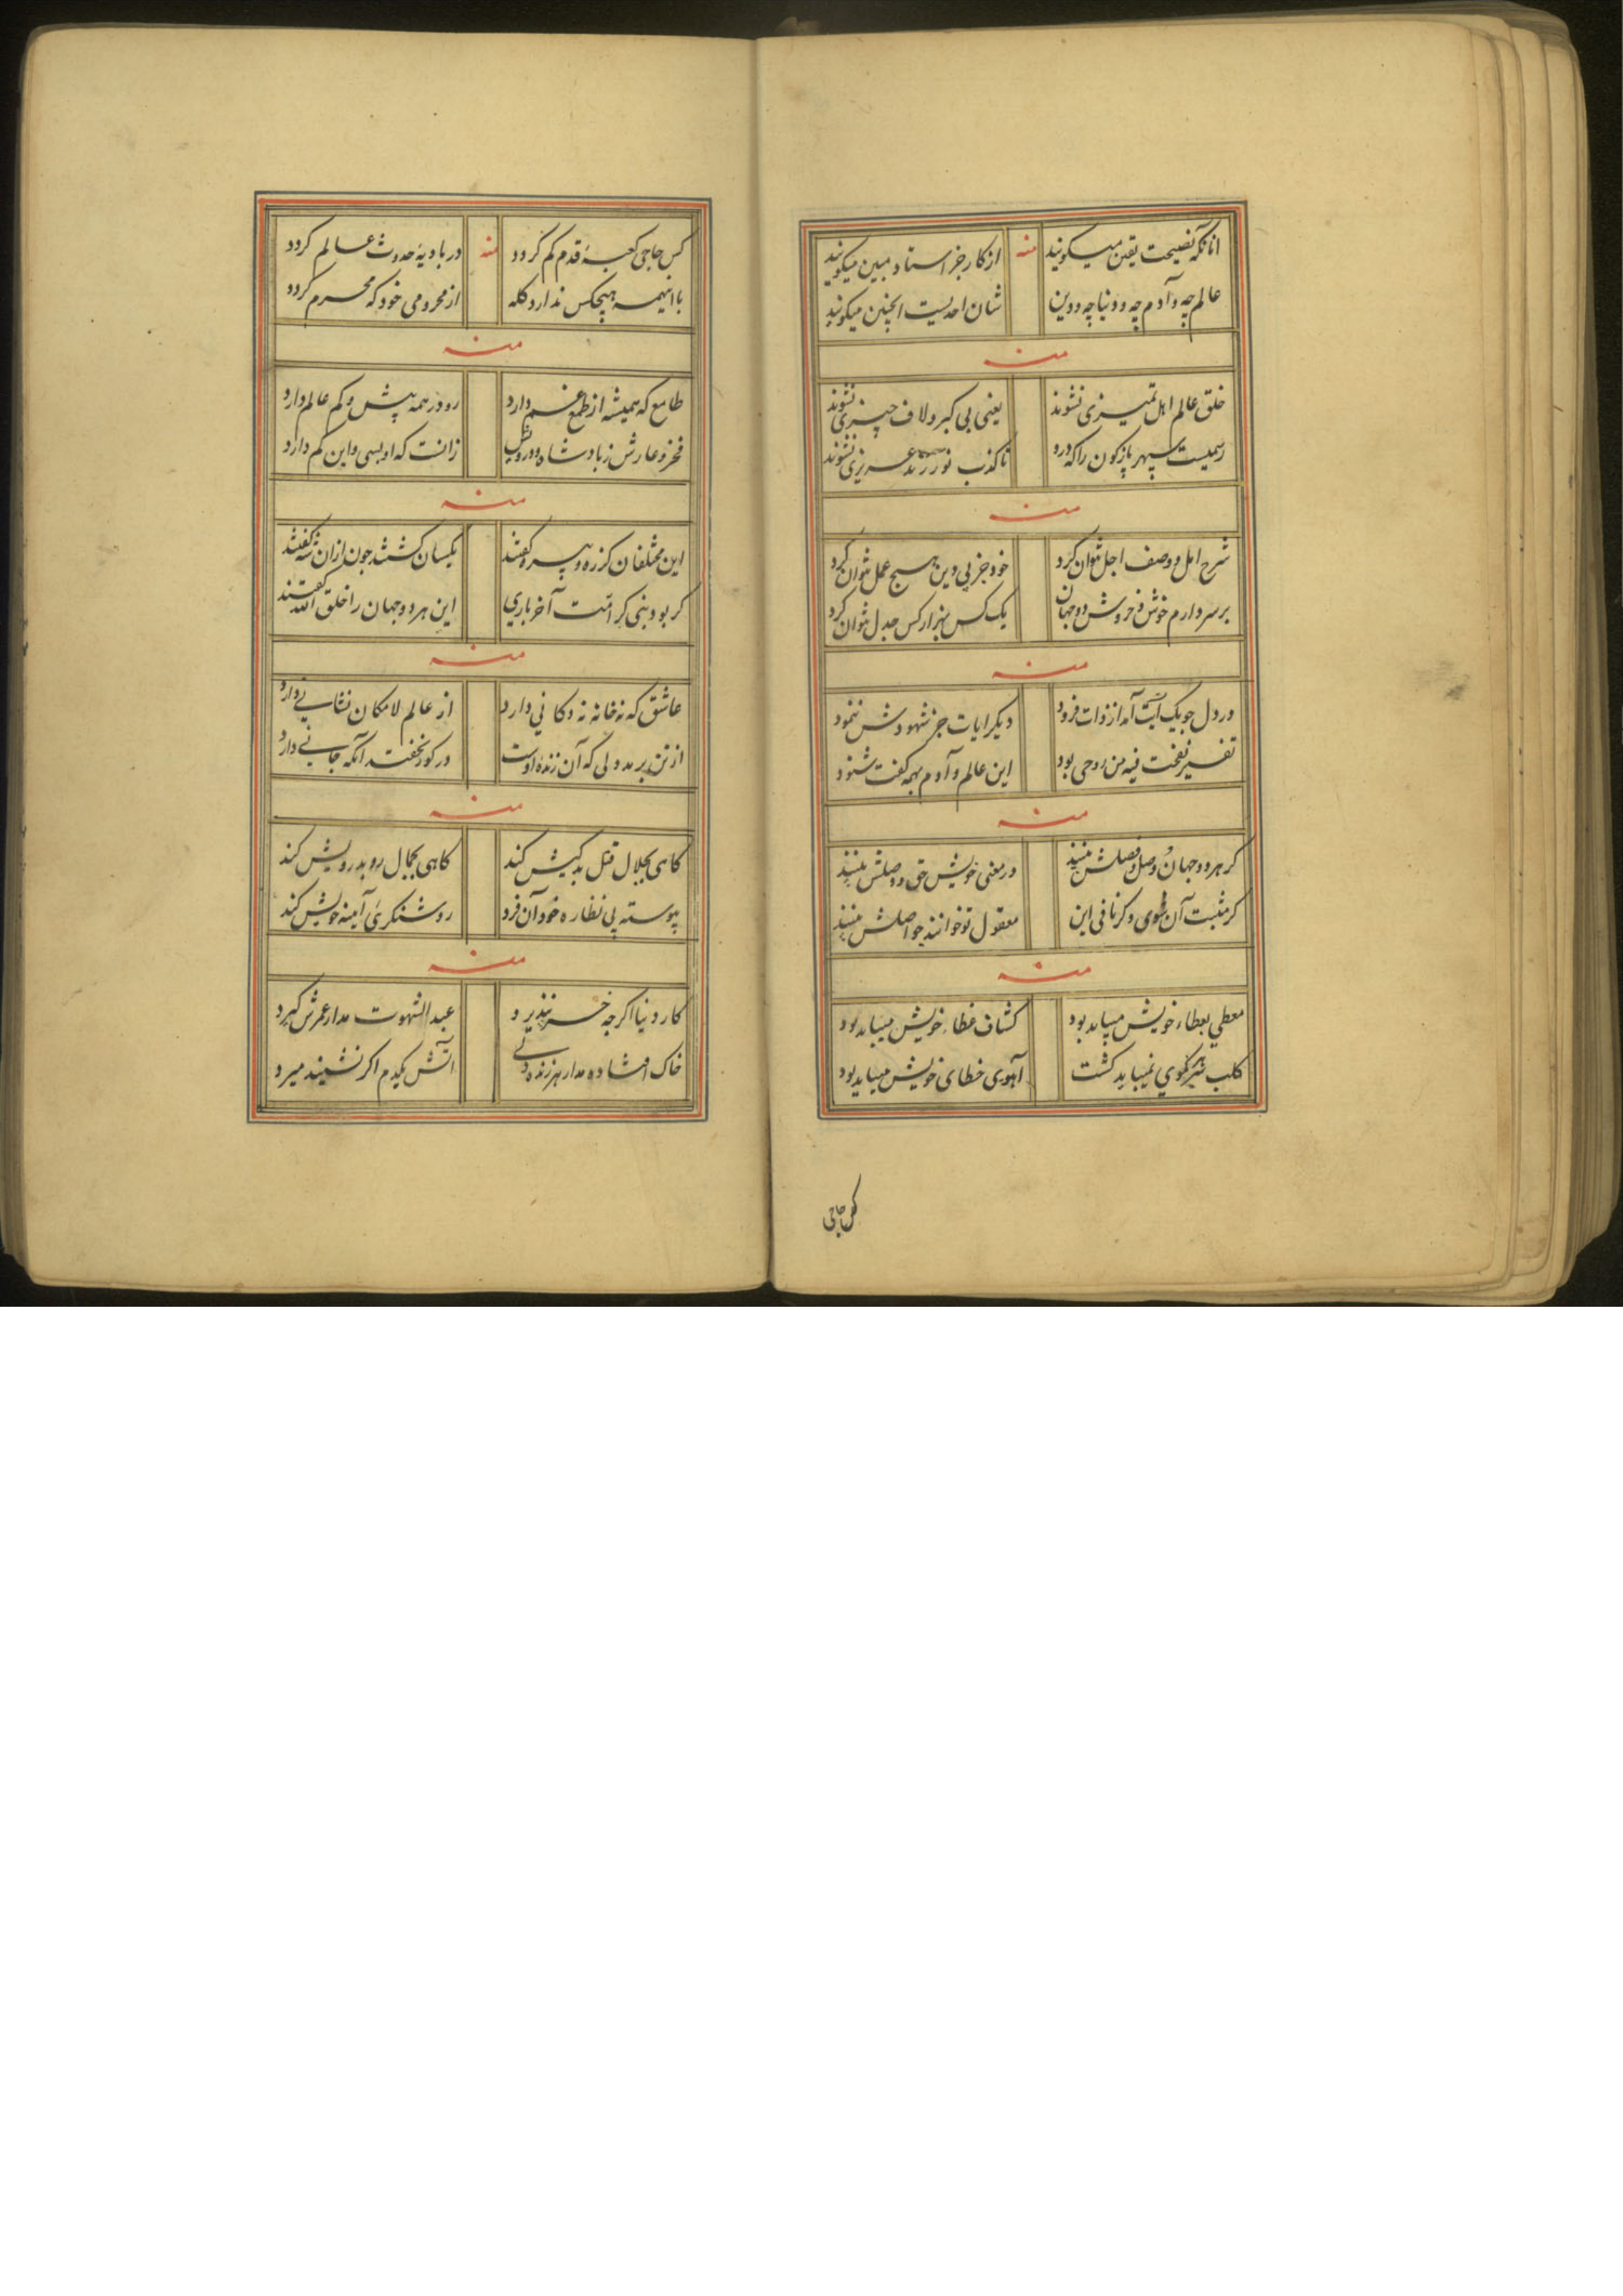 انانکه نصیحت یقین میکویند منه از کار جز استاد مبین میکویند
عالم چه و آدم چه و دنیا چه و دین شان احدیست اینچنین میکویند
منه
خلق عالم اهل تمیزی نشوند یعنی بی کبر و لاف چیزی نشوند
رسمیست سپهر باژکون را که درو تا کذب نورزند عزیزی نشوند
منه
شرح امل و وصف اجل نتوان کرد خود جز پی دین هیچ عمل نتوان کرد
بر سر دارم خوش خروش دو جهان یک کس بهزار کس جدل نتوان کرد
منه
در دل جو یک آیت آمد از ذات فرود دیکر ایات جز شهودش ننمود
تفسیر نفخت فیه من روحی بود این عالم و آدم همه کفت شنود
منه
کر هر دو جهان وصل و فصلش بینند در معنی خویش حق و وصلش بینند
کر مثبت آن شوی و کر نافی این معقول تو خوانند جو اصلش بینند
منه
معطی بعطاء خویش میباید بود کشاف غطاء خویش میباید بود
کلب شیر کوی نمیباید کشت آهوی خطای خویش میباید بود
کس حاجی
کس حاجی کعبهٔ قدم کم کردد منه در بادیهٔ حدوث عالم کردد
با اینهمه هیچکس ندارد کله از محرومی خود که محرم کردد
منه
طامع که همیشه از طمع غم دارد رو در همه بیش و کم عالم دارد
فخر و عارش ز پادشاه و درویش زانست که او بسی و این کم دارد
منه
این مختلفان کز ره و بیره کفتند یکسان کشتند جون از ان شه کفتند
کر بود بنی کر امت آخر باری این هر دو جهان را خلق الله کفتند
منه
عاشق که نه خانه نه دکانی دارد از عالم لامکان نشانی دارد
از تن برمد ولی که آن زنده اوست در کور نخفت آنکه جانی دارد
منه
کاهی بجلال قتل بدکیش کند کاهی بجمال رو بدرویش کند
پیوسته پی نظاره خود آن فرد روشنکری آینه خویش کند
منه
کار دنیا اکر جه خر نپذیرد عبد الشهوت مدار عمرش کیرد
خاک افتاده مدار هر زنده دنی آتش یکدم اکر نشیند میرد